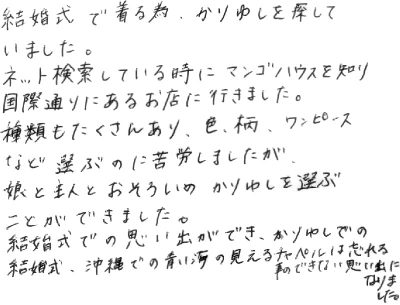 結婚式で着る為、かりゆしを探して
いました。
ネット検索している時にマンゴハウスを知り
国際通りにあるお店に行きました。
種類もたくさんあり、色、柄、ワンピース
など選ぶのに苦労しましたが、
娘と主人とおそろいの かりゆしを選ぶ
ことができました。
結婚式での思い出ができ、かりゆしでの
結婚式、沖縄での青い海の見えるチャペルは忘れる
事のできない思い出に
なりま
した。